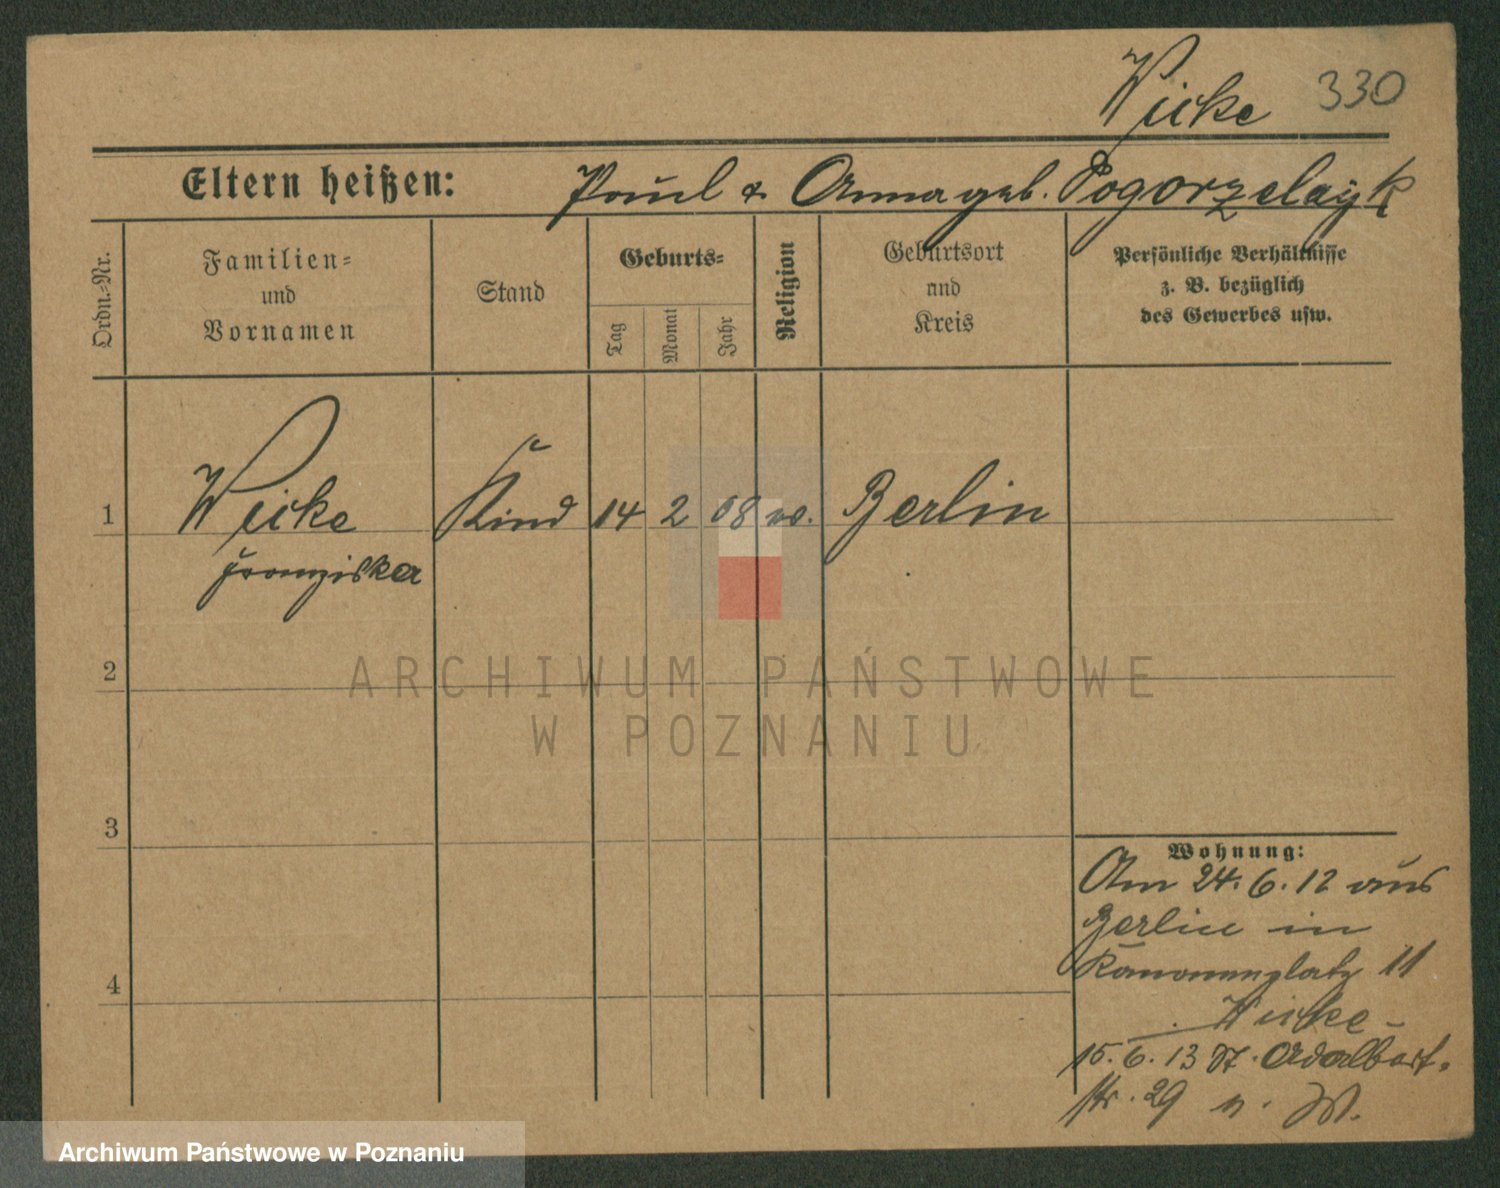 Wicke 330
Eltern heißen: Paul & Anna geb. Pogorzelayk
Ordn.=Nr.
Familien=
und
Vornamen
Stand
Geburts=
Tag
Monat
Jahr
Religion
Geburtsort
und
Kreis
Persönliche Verhältnisse
z. B. bezüglich
des Gewerbes usw.
1 Wicke Kind 14 2 08 Berlin
Franziska
2
3
4
Wohnung:
Am 24. 6. 12 aus
Berlin in
Kanonenplatz 11
Wicke
15. 6. 13 St. Adalbert-
str. 29 n. W.
ARCHIWUM PAŃSTWOWE
W POZNANIU
Archiwum Państwowe w Poznaniu